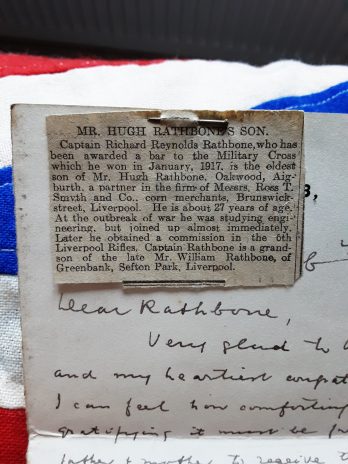 MR. HUGH RATHBONE'S SON.
Captain Richard Reynolds Rathbone, who has
been awarded a bar to the Military Cross
which he won in January, 1917, is the eldest
son of Mr. Hugh Rathbone, Oakwood, Aig-
burth, a partner in the firm of Messrs. Ross T.
Smyth and Co., corn merchants, Brunswick-
street, Liverpool. He is about 27 years of age.
At the outbreak of war he was studying engi-
neering, but joined up almost immediately.
Later he obtained a commission in the 6th
Liverpool Rifles. Captain Rathbone is a grand-
son of the late Mr. William Rathbone, of
Greenbank, Sefton Park, Liverpool.
Dear Rathbone,
Very glad to
and my heartiest
I can feel how comforting
gratifying it must be
father & mother to receive